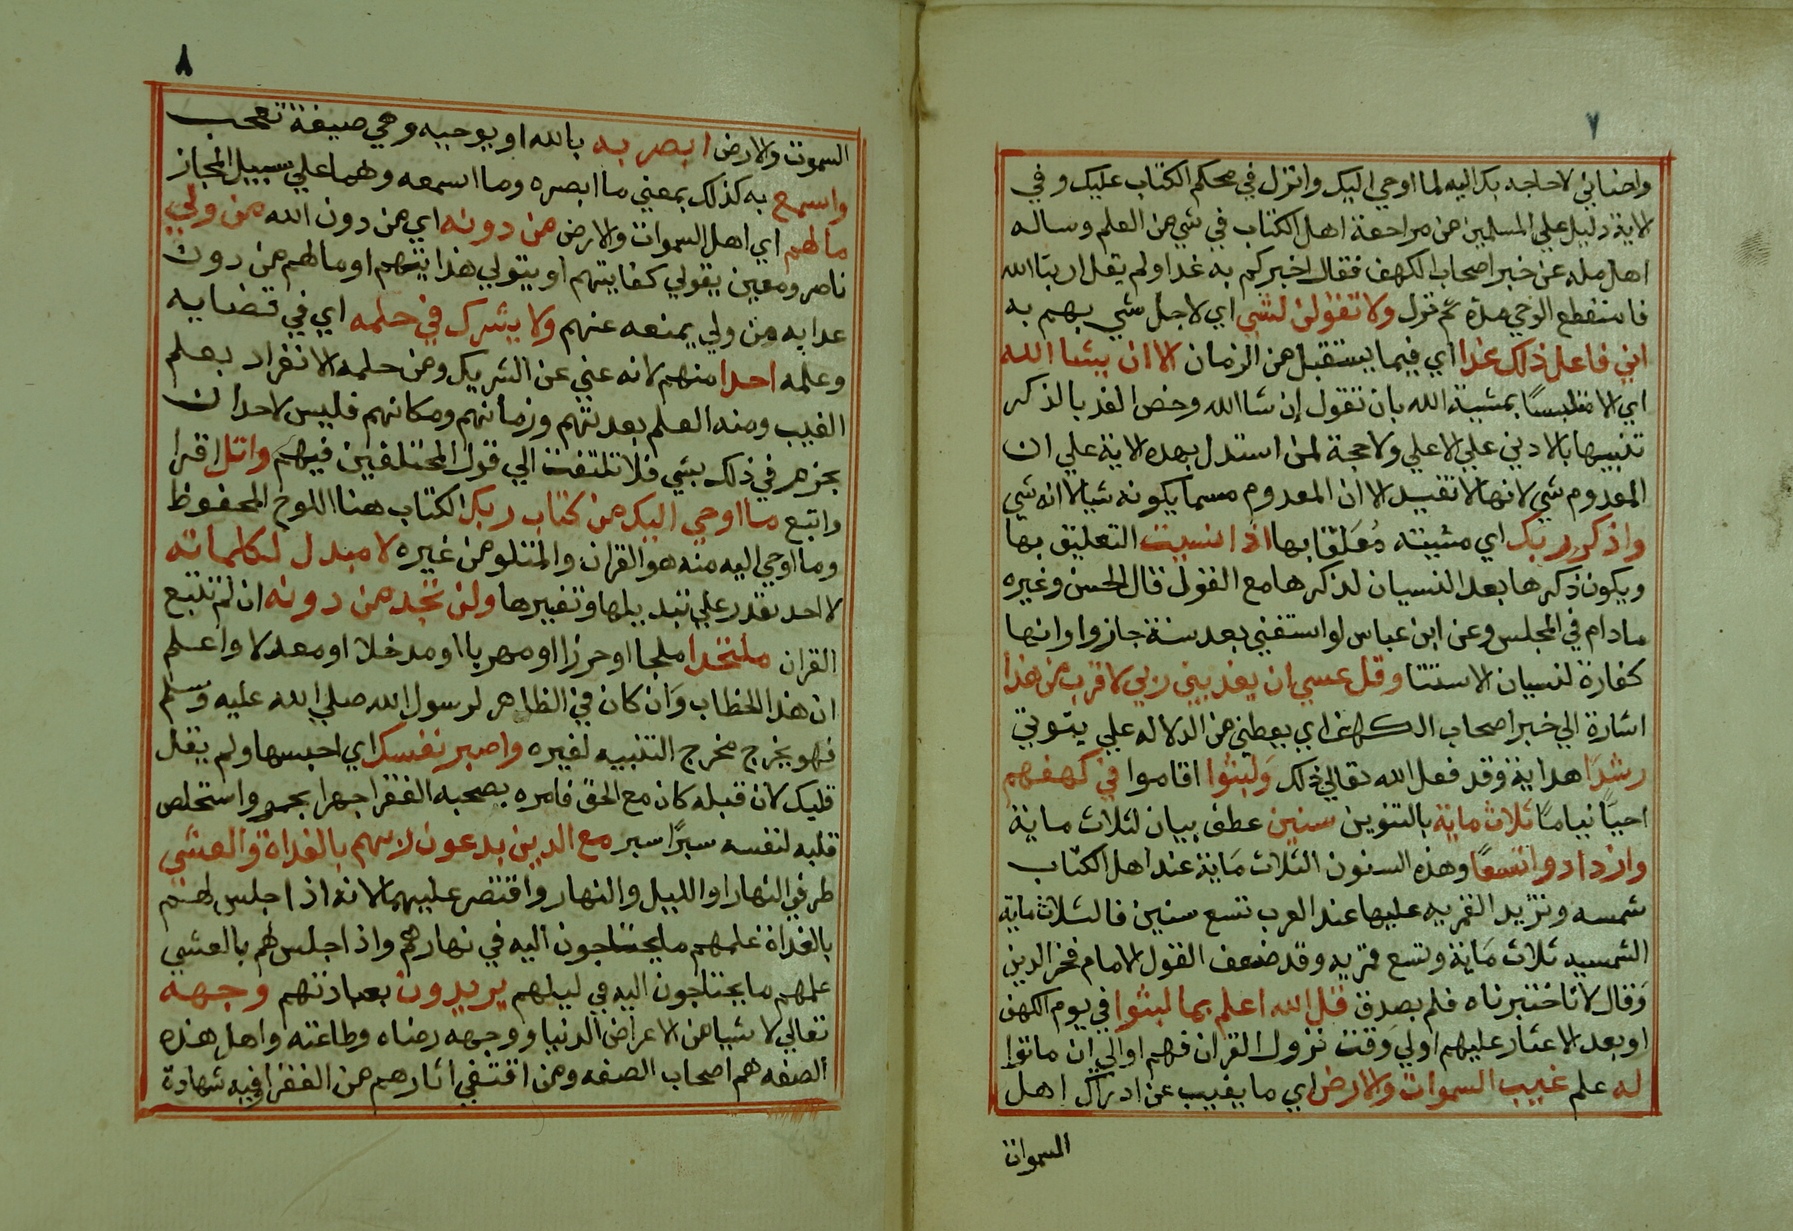 ٧
واحتاني لاحاجه بك اليه لما اوحي اليك وانزل في محكم الكتاب عليك وفي
لاية دليل علي المسلمين من مراجعة اهل الكتاب في شي من العلم وساله
اهل مله عن خبر اصحاب الكهف فقال اخبركم به غدا ولم يقل ان شا الله
فانقطع الوحي مدة ثم نزل ولا تقولن لشي اي لاجل شي يهم به
اني فاعل ذلك غدا اي فيما يستقبل من الزمان الا ان يشا الله
اي الا متلبسا بمشية الله بان تقول إن شا الله وخص الغد بالذكر
تنبيها بالادني علي الاعلي ولا حجة لمن استدل بهده الاية علي ان
المعدوم شي لانها لا تفيد الا ان المعدوم مسما بكونه شيا لا انه شي
واذكر ربك اي مشيته مُعَلقا بها اذا نسيت التعليق بها
ويكون ذكرها بعد النسيان لذكرها مع القول قال الحسن وغيره
مادام في المجلس وعن ابن عباس لو استثني بعد سنة جاز وانها
كفارة لنسيان الاستثنا وقل عسي ان يهديني ربي لاقرب من هذا
اشارة الي خبر اصحاب الكهف اي يعطني من الدلاله علي نبوتي
رشدًا هداية وقد فعل الله تعالي ذلك وَلبثوا اقاموا في كهفهم
احيًا نياما ثلاث ماية بالتنوين سنين عطف بيان لثلاث ماية
وازدادوا تسعًا وهذه السنون الثلاث مَاية عند اهل الكتاب
شمسه وتزيد القمريه عليها عند العرب تسع سنين فالثلاث ماية
الشمسيه ثلاث مَاية وتسع قمريه وقد ضعف القول الامام فخر الدين
وَقال لانا ختبرناه فلم يصدق قل الله اعلم بما لبثوا في يوم الكهف
او بعد الاعثار عليهم اولي وَقت نزول القران فهم اوالي ان ماتوا
له علم غيب السموات والارض اي ما يغيب عن ادراك اهل
السموات
٨
السموت والارض ابصر به بالله او بوحيه وهي صيغة تعجب
واسمع به كذلك بمعني ما ابصره وما اسمعه وهما علي سبيل المجاز
مالهم اي اهل السموات والارض من دونه اي من دون الله من ولي
ناصر ومعين يقولي كفايتهم او يتولي هدايتهم او مالهم من دون
عدابه من ولي يمنعه عنهم ولا يشرك في حلمه اي في قضايه
وعلمه احدا منهم لانه غني عن الشريك ومن حلمه الانفراد بعلم
الغيب ومنه العلم بعدتهم وزمانهم ومكانهم فليس لاحد ان
يجزم في ذلك بشي فلا تلتفت الي قول المختلفين فيهم واتل اقرا
واتبع ما اوحي اليك من كتاب ربك الكتاب هنا اللوح المحفوظ
وما اوحي اليه منه هو القران والمتلو من غيره لا مبدل لكلماته
لا احد يقدر علي تبديلها وتغييرها ولن تجد من دونه ان لم تتبع
القران ملتحدا ملجا او حرزا او مهربا او مدخلا او معدلا واعلم
ان هذا الخطاب وَان كان في الظاهر لرسول الله صلي الله عليه وسلم
فهو يخرج مخرج التنبيه لغيره واصبر نفسك اي احبسها ولم يقل
قلبك لان قبله كان مع الحق فامره بصحبه الفقرا جهرا بجهر واستخلص
قلبه لنفسه سرًا سر مع الدين يدعون ربهم بالغداة والعشي
طرفي النهار او الليل والنهار واقتصر عليهما لانه اذا جلس لهم
بالغداة علمهم ما يحتاجون اليه في نهارهم واذا جلس لهم بالعشي
علمهم ما يحتاجون اليه في ليلهم يريدون بعبادتهم وجهه
تعالي لا شيا من الاعراض الدنيا ووجهه رضاه وطاعته واهل هذه
الصفه هم اصحاب الصفه ومن اقتفي اثارهم من الفقرا وفيه شهادة